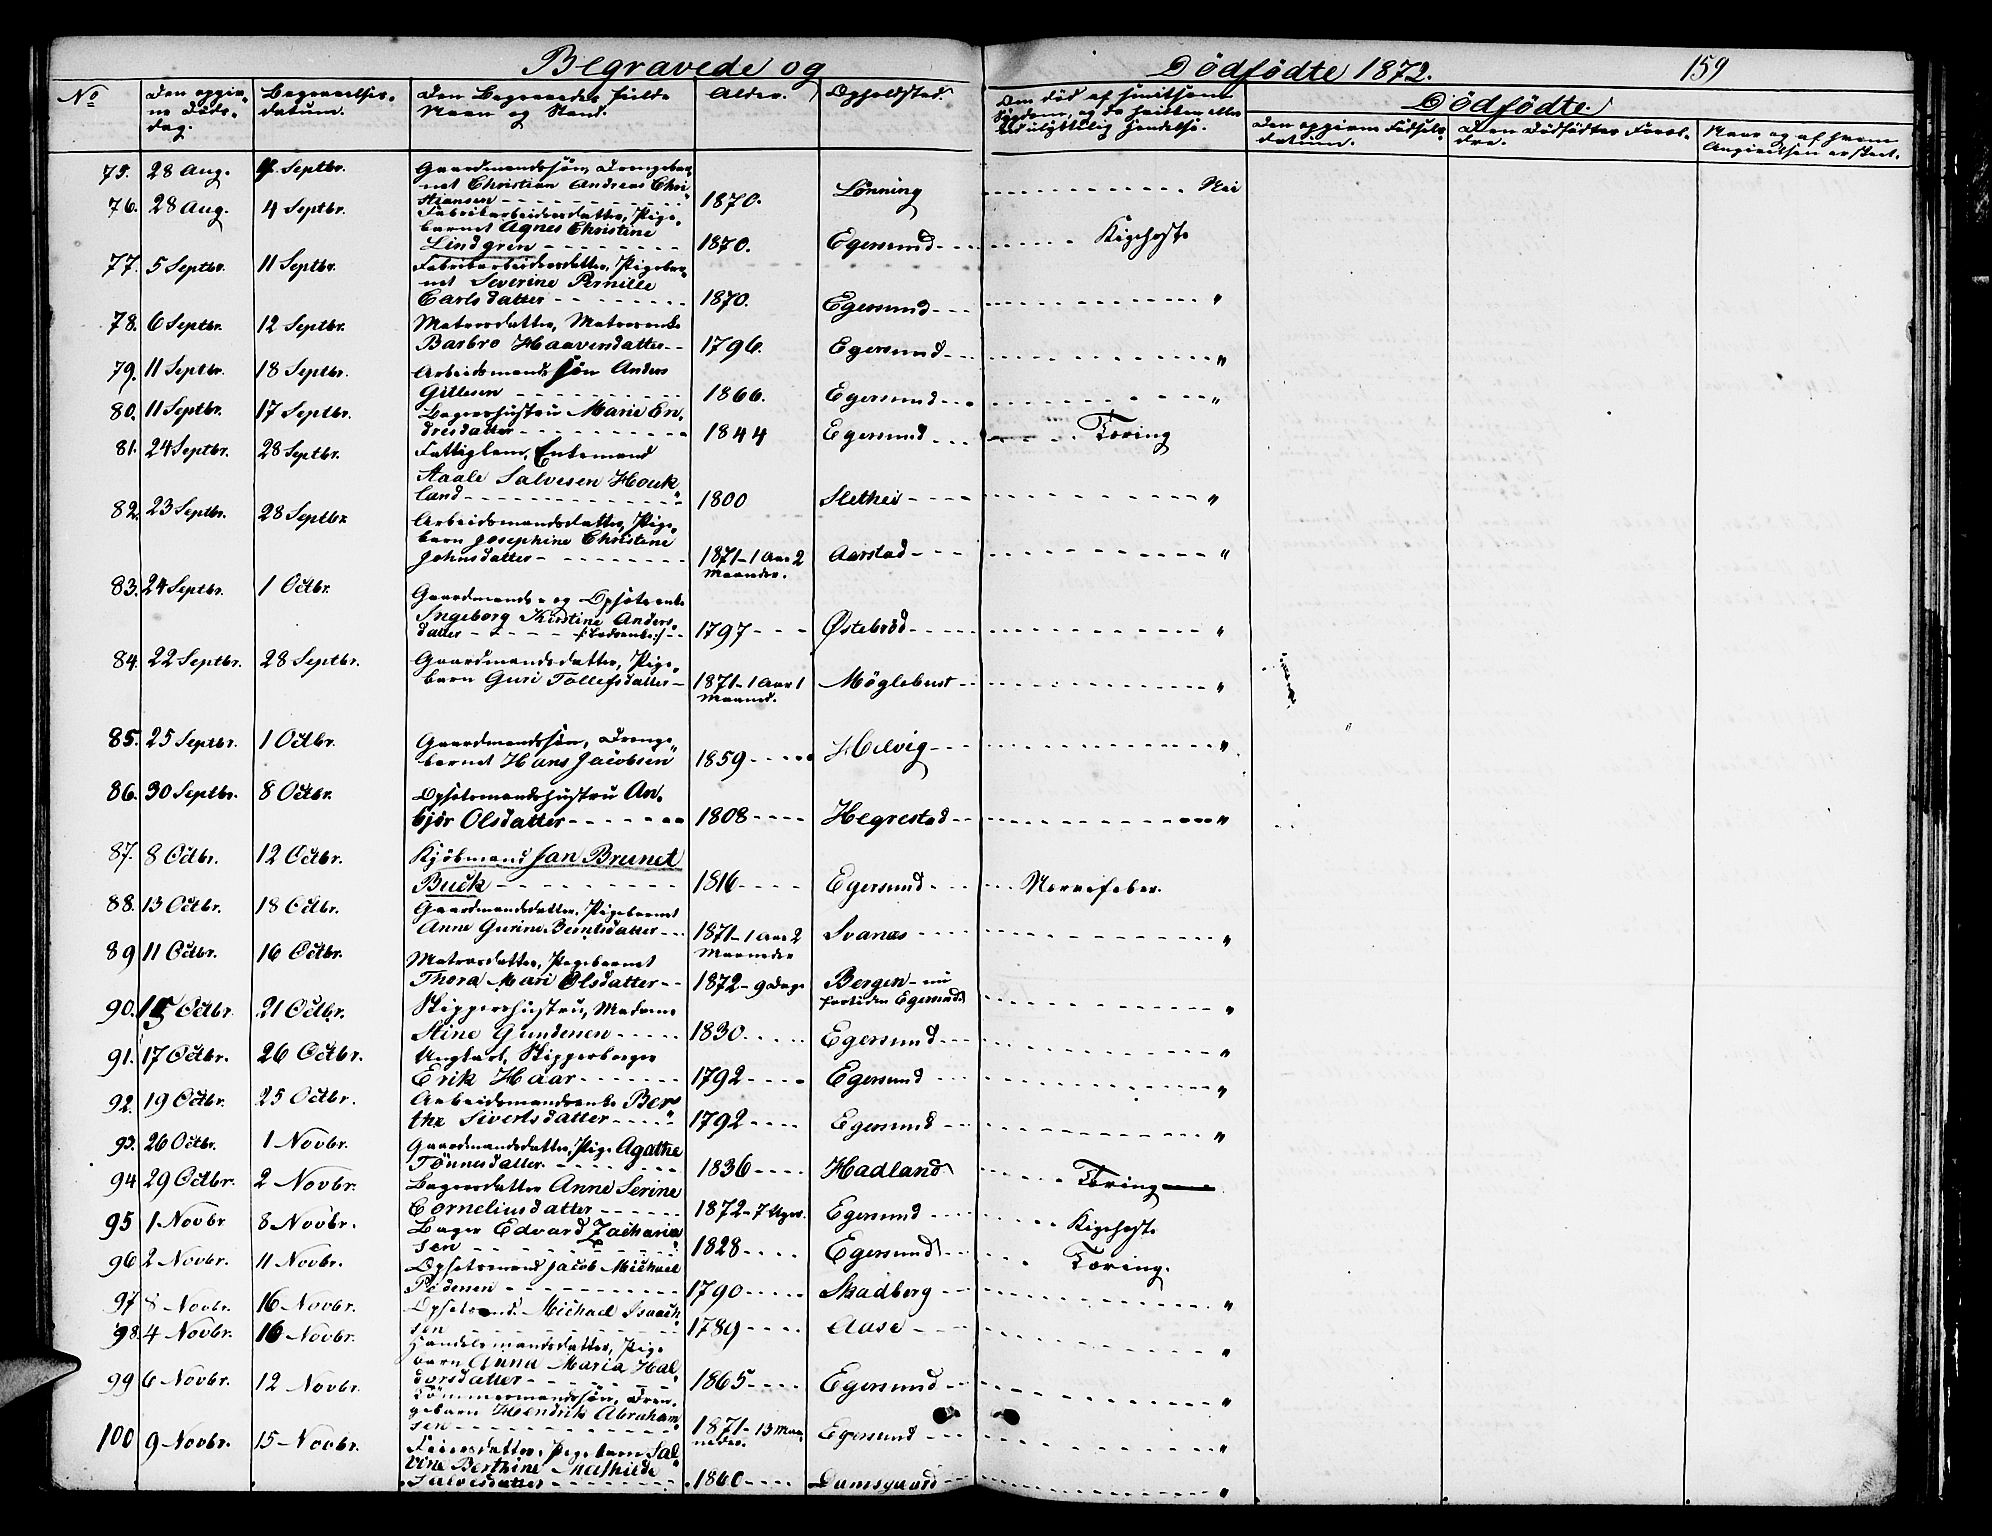 Begravede og
Dödfödte 1872.
159
No
Den opgiv-
ne Döds-
dag.
Begravelses-
datum.
Den Begravedes fulde
Navn og Stand.
Alder.
Opholdsted.
Om död af smitsom
Dödfödte.
Den opgivne Födsels-
datum.
Den Dödfödtes Foræl-
dre.
Naar og af hvem
Angivelsen er skeet.
75. 28 Aug. 4. Septbr. Gaardmandssön, Drengebar-
net Christian Andreas Chri-
stiansen 1870. Lönning Nei
76. 28 Aug. 4 Septbr. Fabrikarbeidersdatter, Pige-
barnet Agnes Christine
Lindgren 1870. Egersund Kighoste
77. 5 Septbr. 11 Septbr. Fabrikarbeidersdatter, Pigebar-
net Severine Pernille
Carlsdatter 1870. Egersund "
78. 6 Septbr. 12 Septbr. Matrosdatter, Matrosenke
Barbro Haavensdatter 1796. Egersund "
79. 11 Septbr. 18 Septbr. Arbeidsmands sön Anders
Gitlesen 1866. Egersund "
80. 11 Septbr. 17 Septbr. Bagershustru Marie En-
dresdatter 1844 Egersund Tæring
81. 24 Septbr. 28 Septbr. Fattiglem, Enkemand
Staale Salvesen Houk-
land 1800 Slethei "
82. 23 Septbr. 28 Septbr Arbeidsmandsdatter, Pige-
barn Josephine Christine
Johnsdatter 1871-1 Aar 2
Maaneder. Aarstad "
83. 24 Septbr. 1 Octbr. Gaardmands- og Opsidsenke
Ingeborg Kirstine Anders-
datter 1797 Østebröd "
84. 22 Septbr. 28 Septbr. Gaardmandsdatter, Pige-
barn Guri Tollefsdatter 1871-1 Aar 1
Maaned. Möglebust "
85. 25 Septbr. 1 Octbr. Gaardmandssön, Drenge-
barnet Hans Jacobsen 1859 Helvig "
86. 30 Septbr. 8 Octbr. Opsidsmandshustru An-
björ Olsdatter 1808 Hegrestad "
87. 8 Octbr. 12 Octbr. Kjöbmand Jan Brunet
Buck 1816 Egersund Nervefeber.
88. 13 Octbr. 18 Octbr. Gaardmandsdatter, Pigebarnet
Anne Gurine Berntsdatter 1871-1 Aar 2
Maaneder Svanes "
89 11 Octbr. 16 Octbr. Matrosdatter, Pigebarnet
Thora Mari Olsdatter 1872-9 Dage Bergen - nu
fortiden Egersund "
90. 15 Octbr. 21 Octbr. Skippershustru, Madame
Stine Gundersen 1830 Egersund "
91. 17 Octbr. 26 Octbr. Ungkarl, Skipperborger
Erik Haar 1792 Egersund "
92. 19 Octbr. 25 Octbr. Arbeidsmandsenke Ber-
the Sivertsdatter 1792 Egersund "
93. 26 Octbr. 1 Novbr. Gaardmandsdatter, Pige Agathe
Tönnesdatter 1836 Hadland Tæring
94 29 Octbr. 2 Novbr. Bagersdatter Anne Serine
Corneliusdatter 1872-7 Uger. Egersund Kighoste
95 1 Novbr 8 Novbr. Bager Edvard Zacharia-
sen 1828 Egersund Tæring.
96 2 Novbr. 11 Novbr. Opsidsmand Jacob Michael
Pedersen 1790 Skadberg "
97 8 Novbr. 16 Novbr. Opsidsmd. Michael Isaach-
sen 1789 Aase "
98. 4 Novbr. 16 Novbr. Handelsmandsdatter, Pige-
barn Anna Maria Hal-
dorsdatter 1865 Egersund "
99 6 Novbr. 12 Novbr. Tömmermandssön, Dren-
gebarn Hendrik Abraham-
sen 1871-13 Maa-
neder. Egersund "
100 9 Novbr. 15 Novbr. Feiersdatter, Pigebarn Sal-
vine Berthine Mathilde
Salvesdatter 1860 Damsgaard "